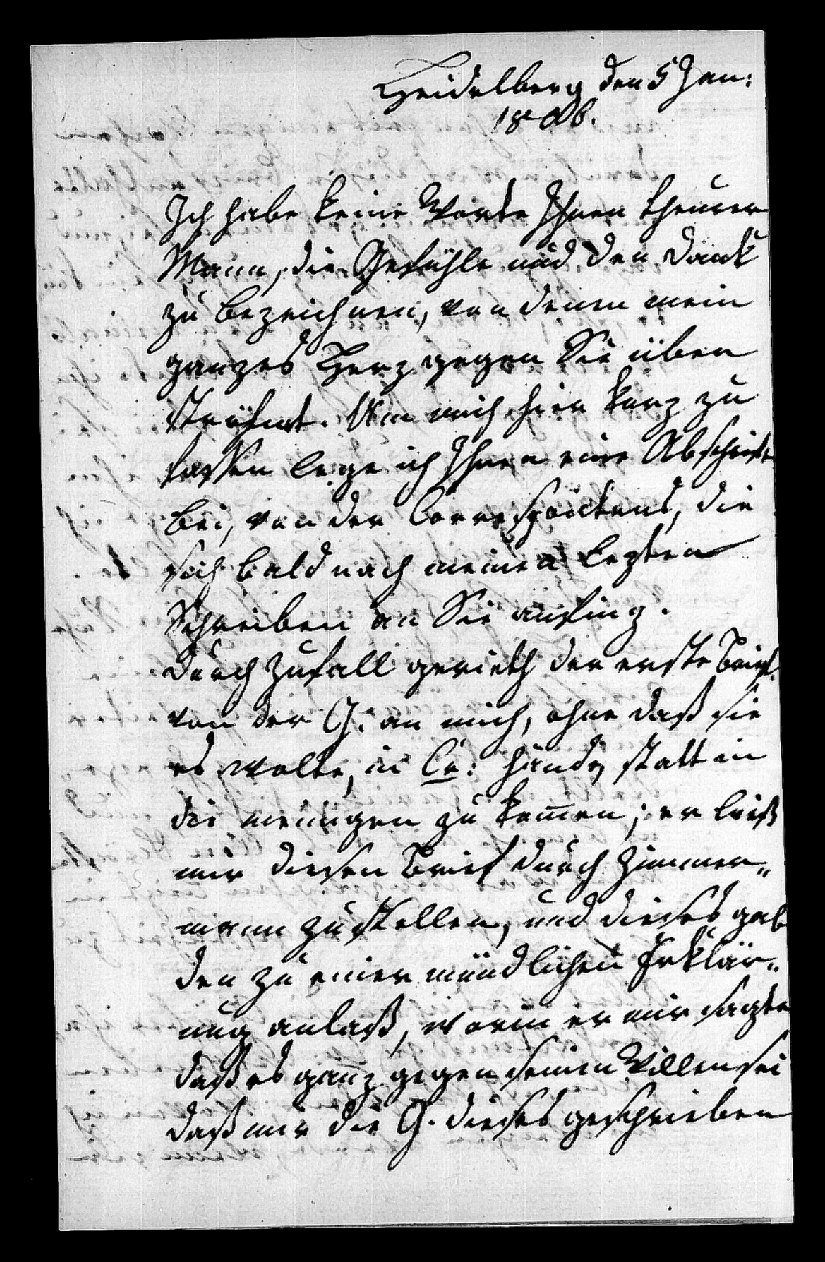 Heidelberg den 5 Jan:
1806.
Ich habe keine Worte Ihnen theurer
Mann, die Gefühle und den Dank
zu bezeichnen, von denen mein
ganzes Herz gegen Sie über
ströhmt. Um mich hier kurz zu
fassen lege ich Ihnen eine Abschrift
bei, von der Correspontens, die
sich bald nach meinen lezten
Schreiben an Sie anfing.
Durch Zufall gerieth der erste Brief
von der G. an mich, ohne daß sie
es wolte, in Cr: Händen statt in
die meinigen zu kom̄en; er ließ
mir diesen Brief durch Zimmer-
mann zustellen, und dieses gab
den zu einer mündlichen Erklär-
ung anlaß, worin er mir sagte
daß es ganz gegen seinen Willen sei
daß mir die G. dieses geschrieben